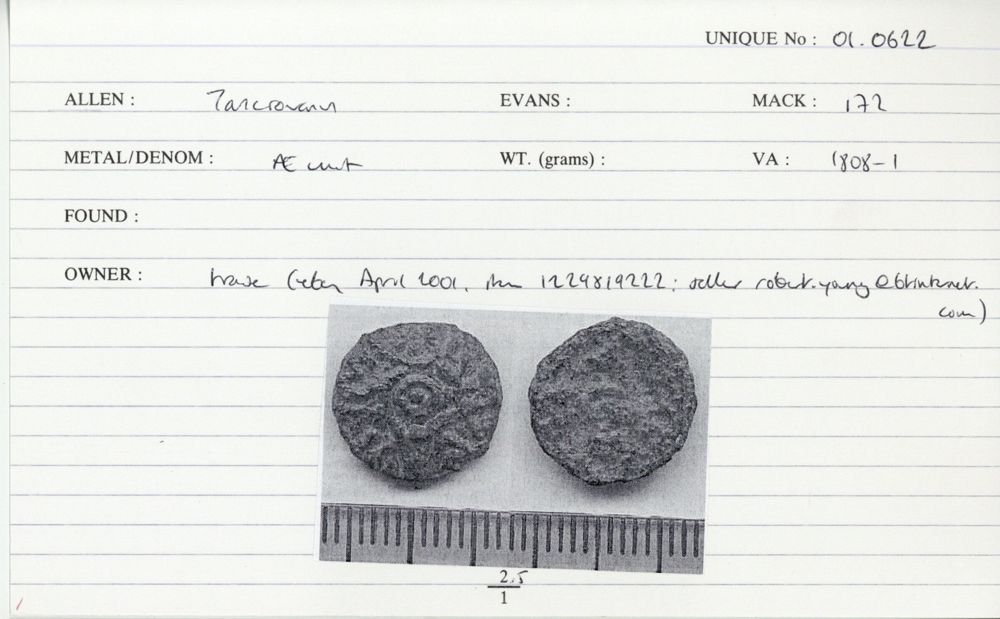 UNIQUE No : 01.0622
ALLEN : Tasciovanus EVANS : MACK : 172
METAL/DENOM : Æ unit WT. (grams) : VA : 1808-1
FOUND :
OWNER : trade (eBay April 2001, item 1224819222; seller robert.young@btinternet.
com)
2.5
1